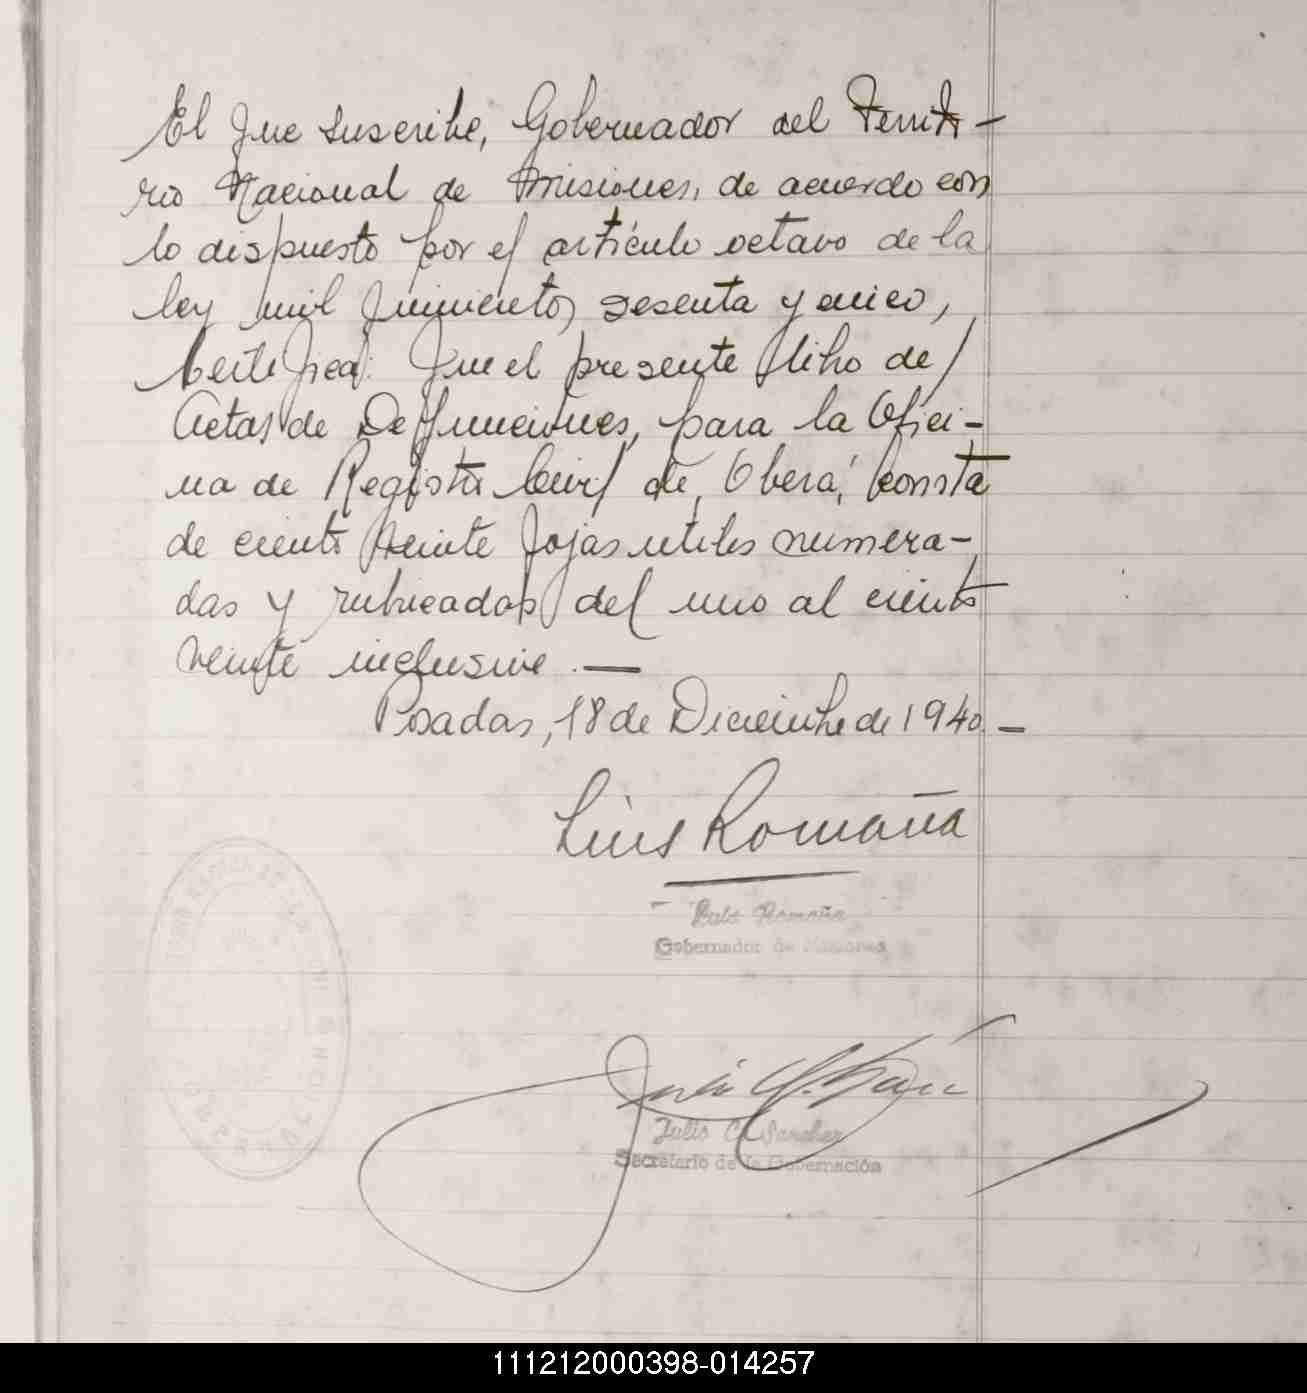 El que suscribe, Gobernador del Territo-
rio Nacional de Misiones, de acuerdo con
lo dispuesto por el artículo octavo de la
ley mil quinientos sesenta y cinco,
Certifica: Que el presente libro de
Actas de Deffunciones, para la Ofici-
na de Registro Civil de Oberá, consta
de ciento veinte fojas utiles numera-
das y rubricadas del uno al ciento
veinte inclusive.—
Posadas, 18 de Diciembre de 1940.—
Luis Romaña
Luis Romaña
Gobernador de Misiones
Julio C. Sanchez
Secretario de la Gobernación
111212000398-014257